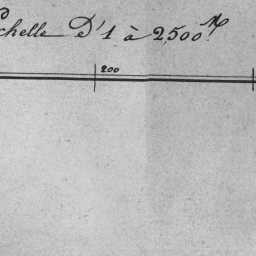 chelle D'1 à 2500
200